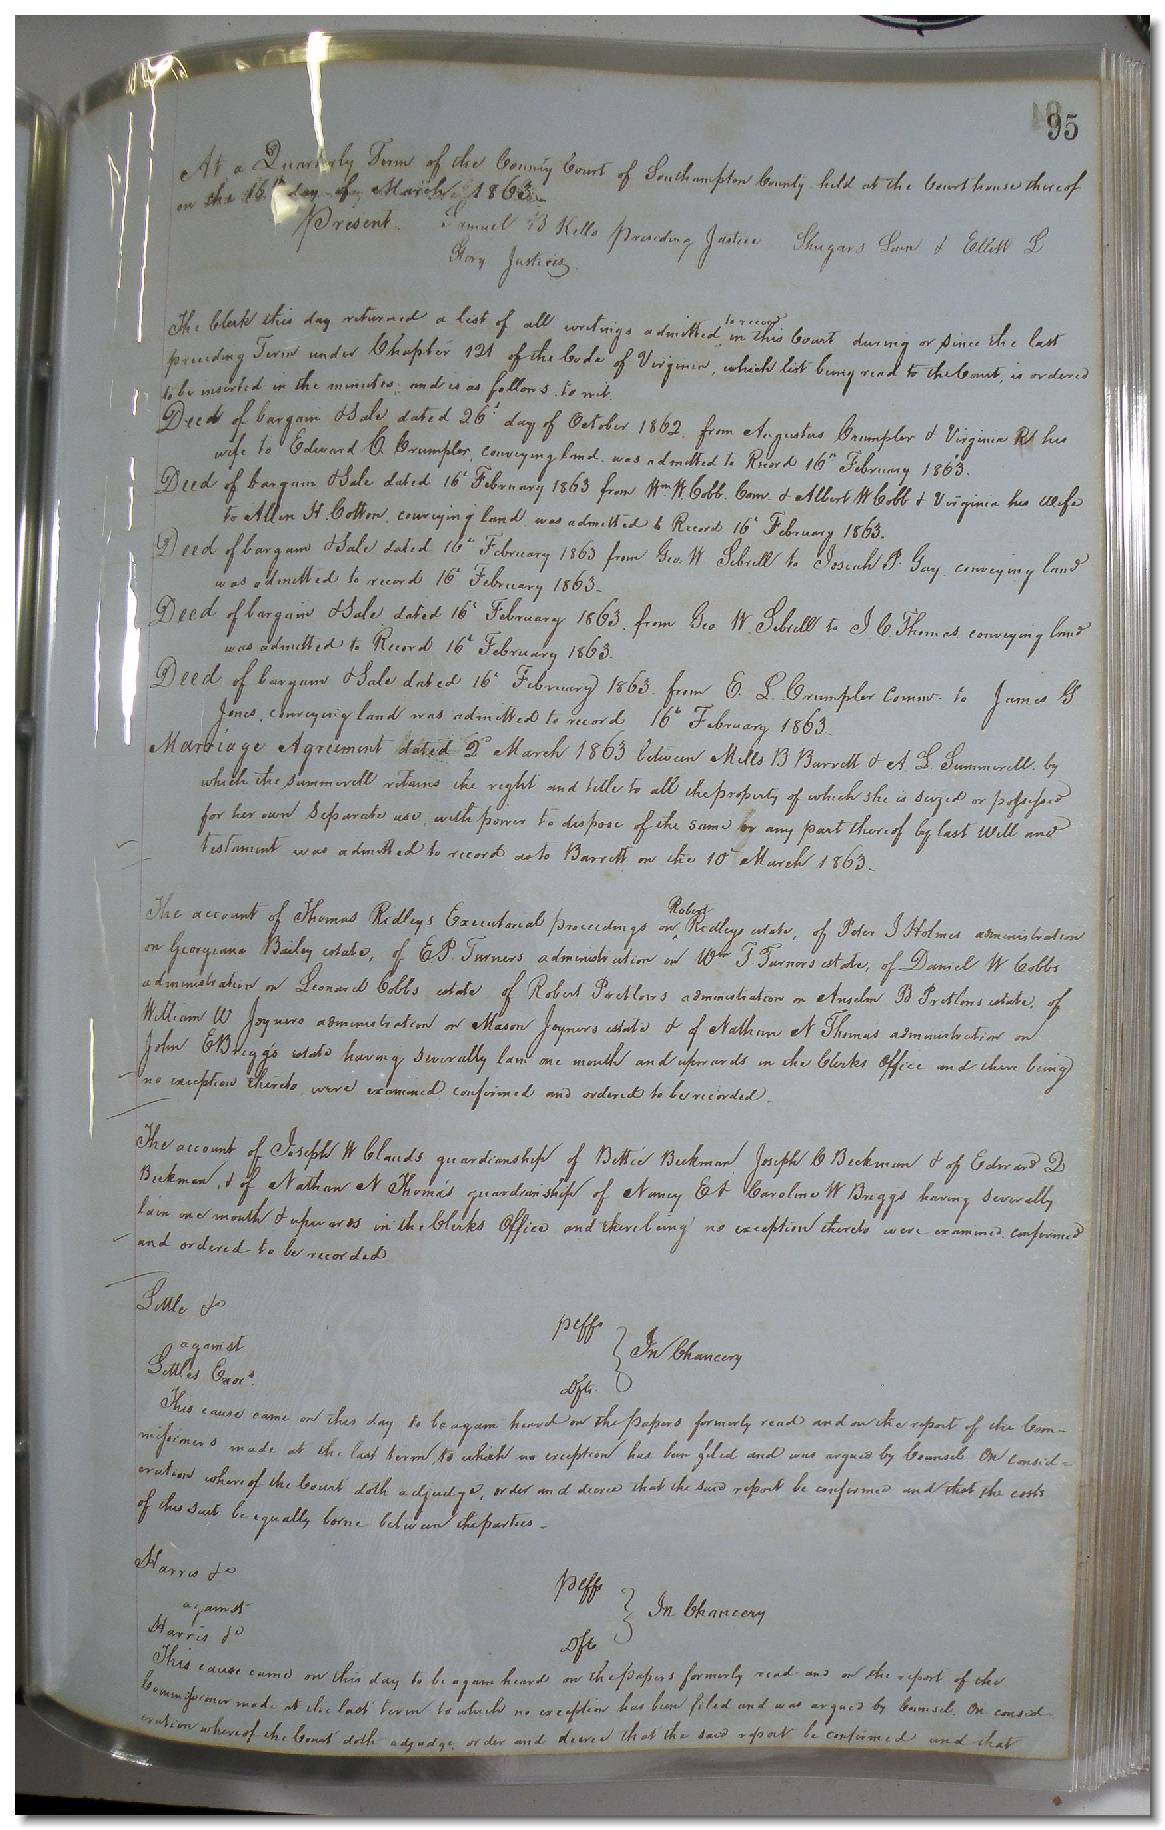 95
At a Quarterly Term of the County Court of Southampton County held at the Court house thereof
on the 16th day of March 1863
Present. Samuel B Kello presiding Justice Shugars Lain & Elliott L
Story Justices.
The Clerk this day returned a list of all writings admitted to record in this Court during or since the last
preceding Term under Chapter 121 of the Code of Virginia, which list being read to the Court, is ordered
to be inserted in the minutes, and is as follows to wit.
Deed of bargain & Sale dated 26th day of October 1862, from Augustus Crumpler & Virginia R his
wife to Edward C. Crumpler, conveying land was admitted to Record 16th February 1863.
Deed of bargain & Sale dated 16th February 1863 from Wm W Cobb Com. & Albert W Cobb & Virginia his wife
to Allen H. Cotton, conveying land was admitted to Record 16th February 1863.
Deed of bargain & Sale dated 16th February 1863 from Geo. W Sebrell to Josiah P. Gay conveying land
was admitted to record 16th February 1863.
Deed of bargain & Sale dated 16th February 1863, from Geo W. Sebrell to J C. Thomas conveying land
was admitted to Record 16th February 1863.
Deed of bargain & Sale dated 16th February 1863 from E. L. Crumpler Commr. to James G
Jones, conveying land was admitted to record 16th February 1863.
Marriage Agreement dated 2d March 1863 between Mills B Barrett & A. L. Summerell by
which the summerell retains the right and title to all the property of which she is seized or possessed
for her own Separate use, with power to dispose of the same or any part thereof by last Will and
testament was admitted to record as to Barrett on the 10th March 1863.
The account of Thomas Ridleys Executorial proceedings on Robert Ridleys estate, of Peter J Holmes administration
on Georgeana Bailey estate, of E P. Turners administration on Wm T Turners estate, of Daniel W Cobbs
administration on Leonard Cobbs estate of Robert Pretlows administration on Anselm B Pretlows estate, of
William W Joyners administration on Mason Joyners estate & of Nathan N Thomas administration on
John E Briggs estate having severally lain one month and upwards in the Clerks Office and there being
no exception thereto were examined confirmed and ordered to be recorded.
The account of Joseph W Clauds guardianship of Bettie Beekman Joseph C Beekman & of Edward D
Beekman, & of Nathan N Thomas guardianship of Nancy E & Caroline W Briggs having severally
lain one month & upwards in the Clerks Office and there being no exception thereto were examined confirmed
and ordered to be recorded.
Settle &c
plffs
against
In Chancery
Settles Exors.
Dfts.
This cause came on this day to be again heard on the papers formerly read and on the report of the Com-
missioners made at the last term to which no exception has been filed and was argued by Counsel On consid=
eration whereof the Court doth adjudge, order and decree that the said report be confirmed and that the costs
of this suit be equally borne between the parties.
Harris &c
plffs
against
In Chancery
Harris &c
Dfts
This cause came on this day to be again heard on the papers formerly read and on the report of the
Commissioner made at the last term to which no exception has been filed and was argued by Counsel. On consid
eration whereof the Court doth adjudge, order and decree that the said report be confirmed and that